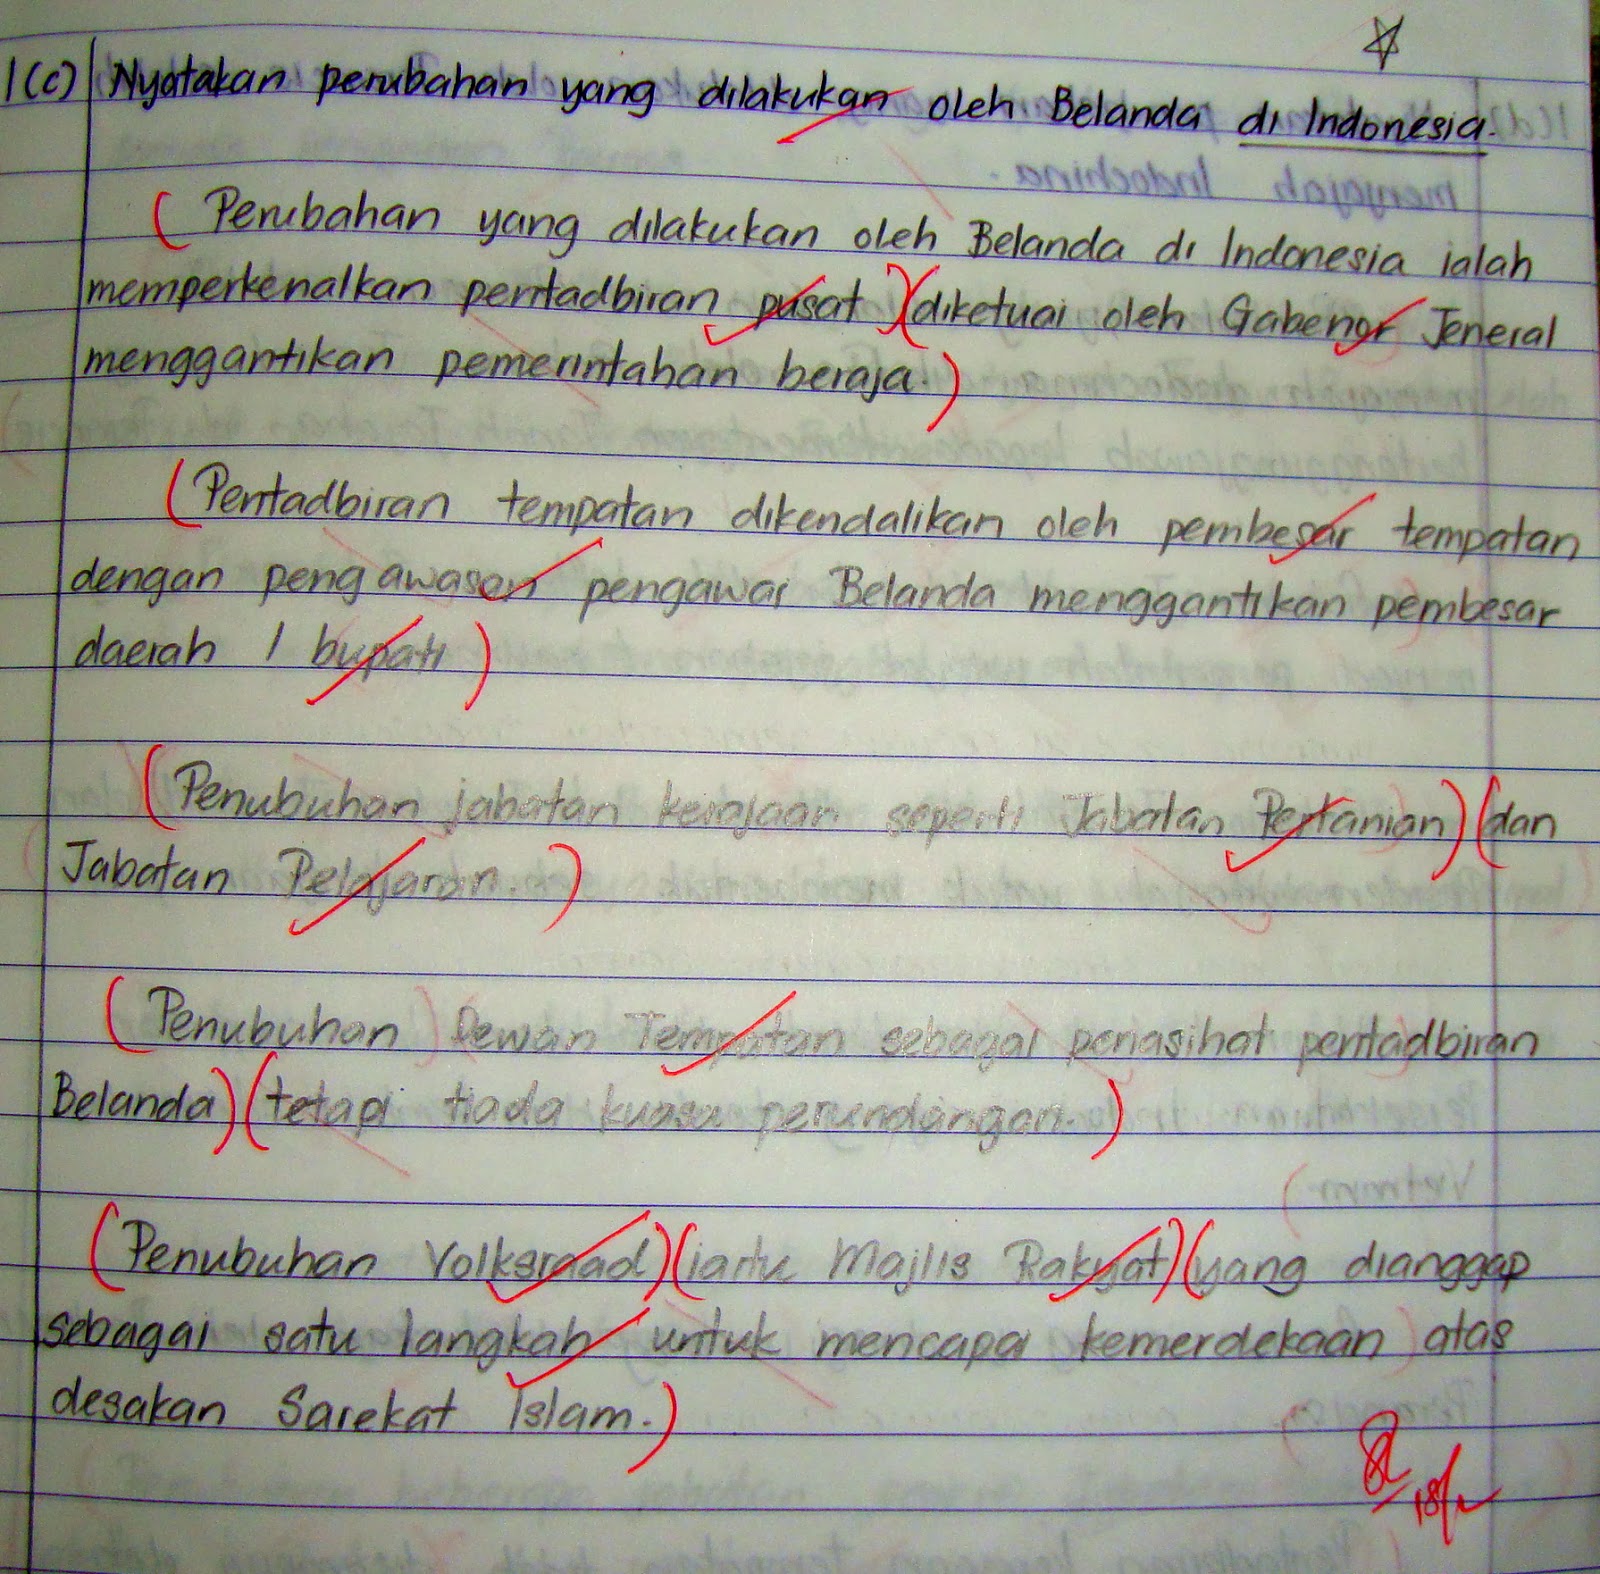 1(c) Nyatakan perubahan yang dilakukan oleh Belanda di Indonesia.
( Perubahan yang dilakukan oleh Belanda di Indonesia ialah
memperkenalkan pentadbiran pusat )( diketuai oleh Gabenor Jeneral
menggantikan pemerintahan beraja. )
( Pentadbiran tempatan dikendalikan oleh pembesar tempatan
dengan pengawasan pengawai Belanda menggantikan pembesar
daerah / bupati )
( Penubuhan jabatan kerajaan seperti Jabatan Pertanian )( dan
Jabatan Pelajaran. )
( Penubuhan Dewan Tempatan sebagai penasihat pentadbiran
Belanda )( tetapi tiada kuasa perundangan. )
( Penubuhan Volksraad )( iaitu Majlis Rakyat )( yang dianggap
sebagai satu langkah untuk mencapai kemerdekaan atas
desakan Sarekat Islam. )